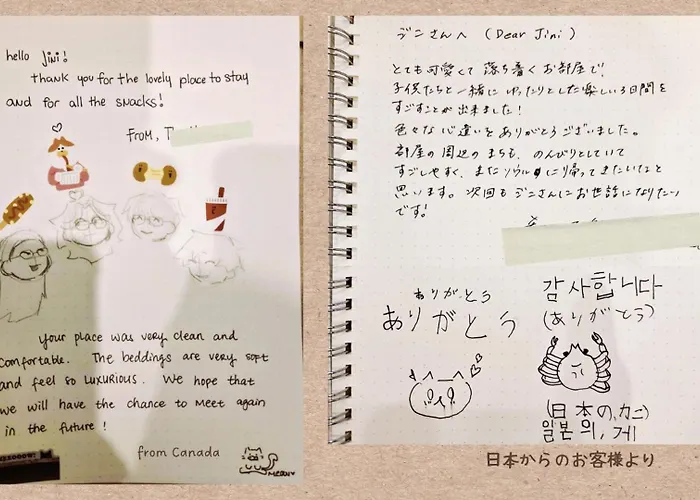 hello Jini!
Thank you for the lovely place to stay
and for all the snacks!
From, T
your place was very clean and
comfortable. The beddings are very soft
and feel so LUXURIOUS. We hope that
we will have the chance to meet again
in the future!
from Canada
MEOW
ジニさんへ (Dear Jini)
とても可愛くて落ち着くお部屋で!
子供たちと一緒にゆったりとした楽しい3日間を
すごすことが出来ました!
色々なお心遣いをありがとうございました。
部屋の周辺のまちも、のんびりとしていて
すごしやすく、またソウルに帰ってきたいなと
思います。次回もジニさんにお世話になりたい
です!
ありがとう
ありがとう
감사합니다
(ありがとう)
(日本のカニ)
일본의, 게
日本からのお客様より